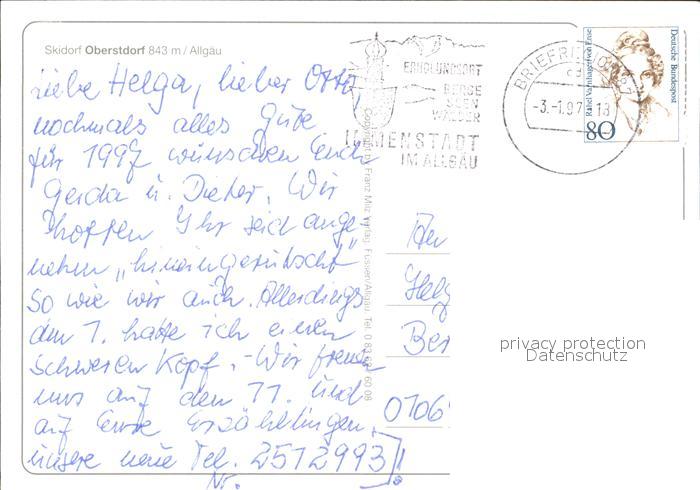 Skidorf Oberstdorf 843 m / Allgäu
Liebe Helga, lieber Otto,
nochmals alles Gute
für 1997 wünschen Euch
Gerda u. Dieter. Wir
hoffen Ihr seid ange-
nehm „hineingerutscht"
so wie wir auch. Allerdings
den 1. hatte ich einen
schweren Kopf. - Wir freuen
uns auf den 11. und
auf Eure Erzählungen.
unsere neue Tel. 2512993
Nr.
ERHOLUNGSORT
BERGE
SEEN
WÄLDER
IMMENSTADT
IM ALLGÄU
-3.-1.97 - 18
Rahel Varnhagen von Ense
Deutsche Bundespost
80
An
Helg
Ber
0106
privacy protection
Datenschutz